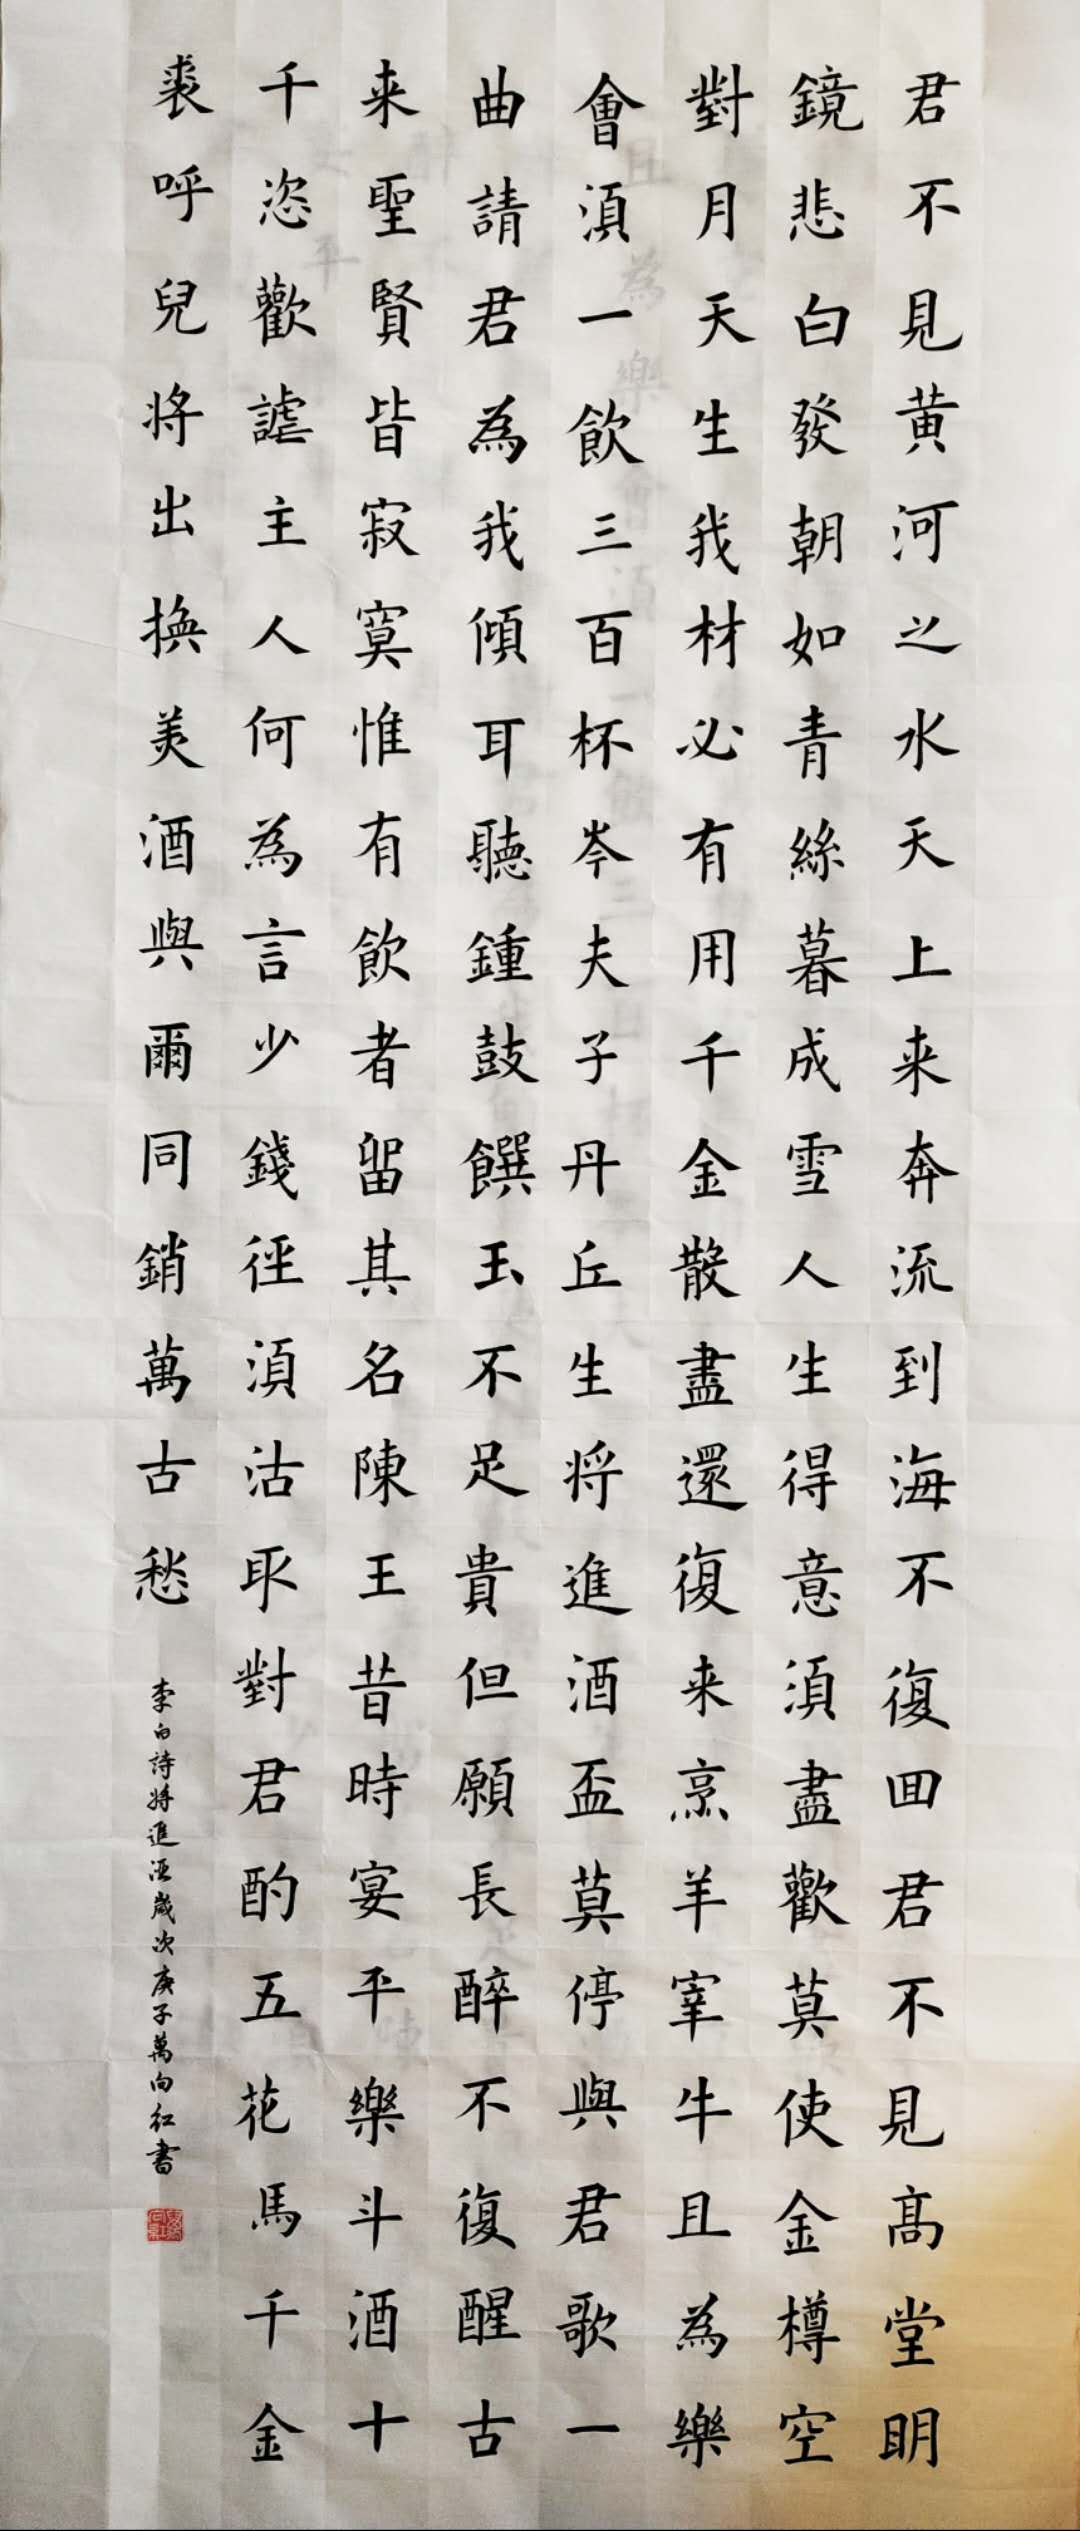 君不見黄河之水天上来奔流到海不復囬君不見髙堂眀
鏡悲白發朝如青絲暮成雪人生得意湏盡歡莫使金樽空
對月天生我材必有用千金散盡還復来烹羊宰牛且為樂
會湏一飲三百杯岑夫子丹丘生将進酒盃莫停與君歌一
曲請君為我傾耳聽鍾鼓饌玉不足貴但願長醉不復醒古
来聖賢皆寂寞惟有飲者留其名陳王昔時宴平樂斗酒十
千恣歡謔主人何為言少錢徑湏沽取對君酌五花馬千金
裘呼兒将出換美酒與爾同銷萬古愁
李白詩将進酒歲次庚子萬向紅書